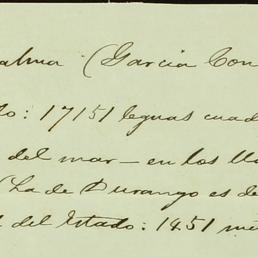 alma (García Con
o: 17151 leguas cuad
del mar — en los lla
(La de Durango es de
l del Estado: 1451 me